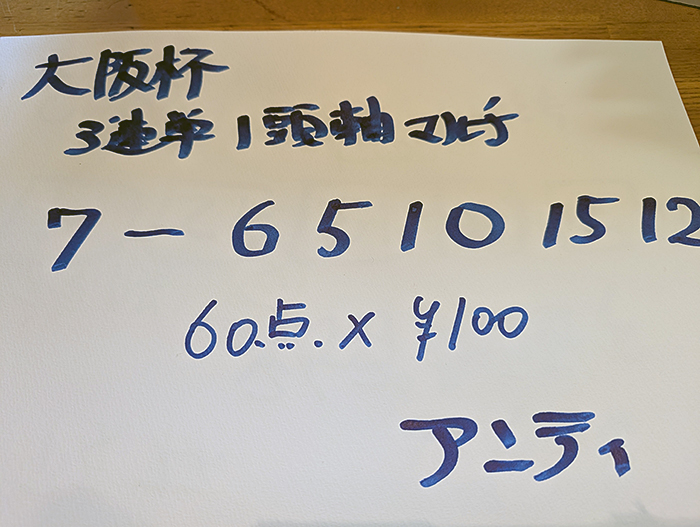 大阪杯
3連単1頭軸マルチ
7－6 5 10 15 12
60点×¥100
アンティ